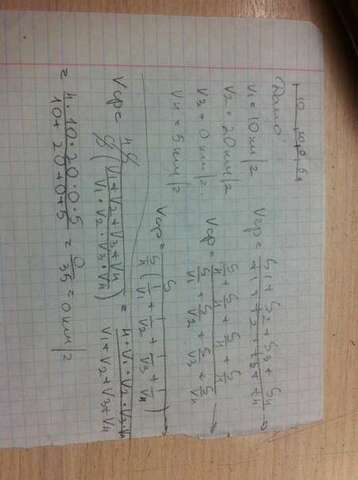 10 20 0 5
Дано:
V₁ = 10 км/ч
V₂ = 20 км/ч
V₃ = 0 км/ч
V₄ = 5 км/ч
Vср = (S₁ + S₂ + S₃ + S₄)/(t₁ + t₂ + t₃ + t₄) →
Vср = (S/4 + S/4 + S/4 + S/4)/(S/V₁ + S/V₂ + S/V₃ + S/V₄) →
Vср = S/(S/4 (1/V₁ + 1/V₂ + 1/V₃ + 1/V₄))
Vср = 4S/(S((V₁ + V₂ + V₃ + V₄)/(V₁ · V₂ · V₃ · V₄))) = (4 · V₁ · V₂ · V₃ · V₄)/(V₁ + V₂ + V₃ + V₄)
= (4 · 10 · 20 · 0 · 5)/(10 + 20 + 0 + 5) = 0/35 = 0 км/ч